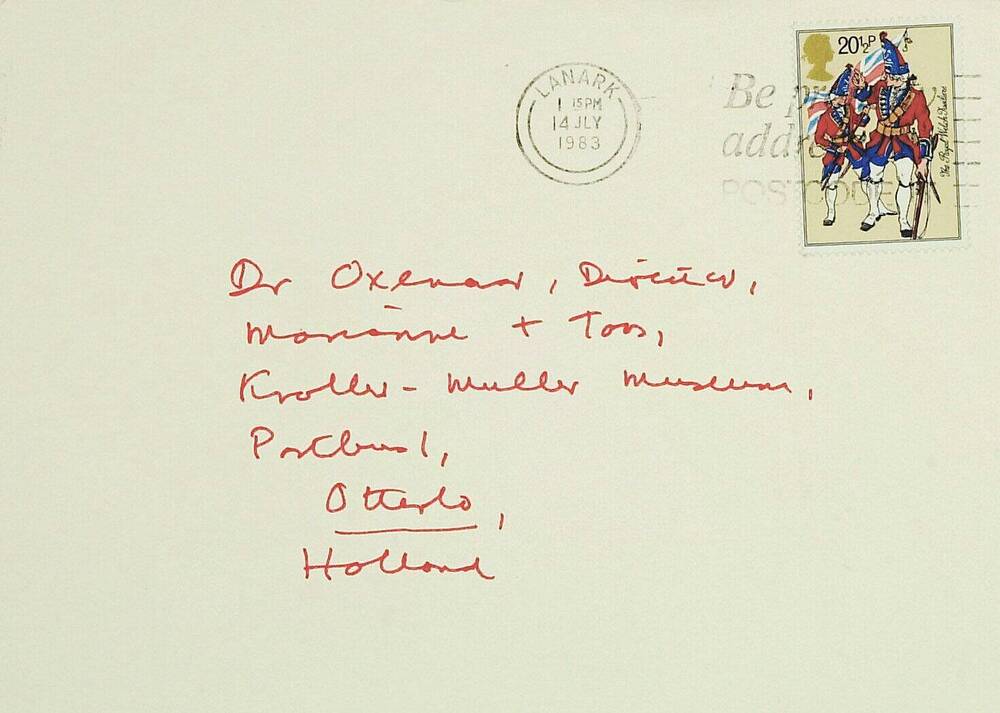 20½P
LANARK
1 15PM
14 JLY
1983
Be pr
addre
POSTCODE
The Royal Welch Fusiliers
Dr Oxenaar, Director,
Marianne + Toos,
Kroller-Muller Museum,
Postbus 1,
Otterlo,
Holland